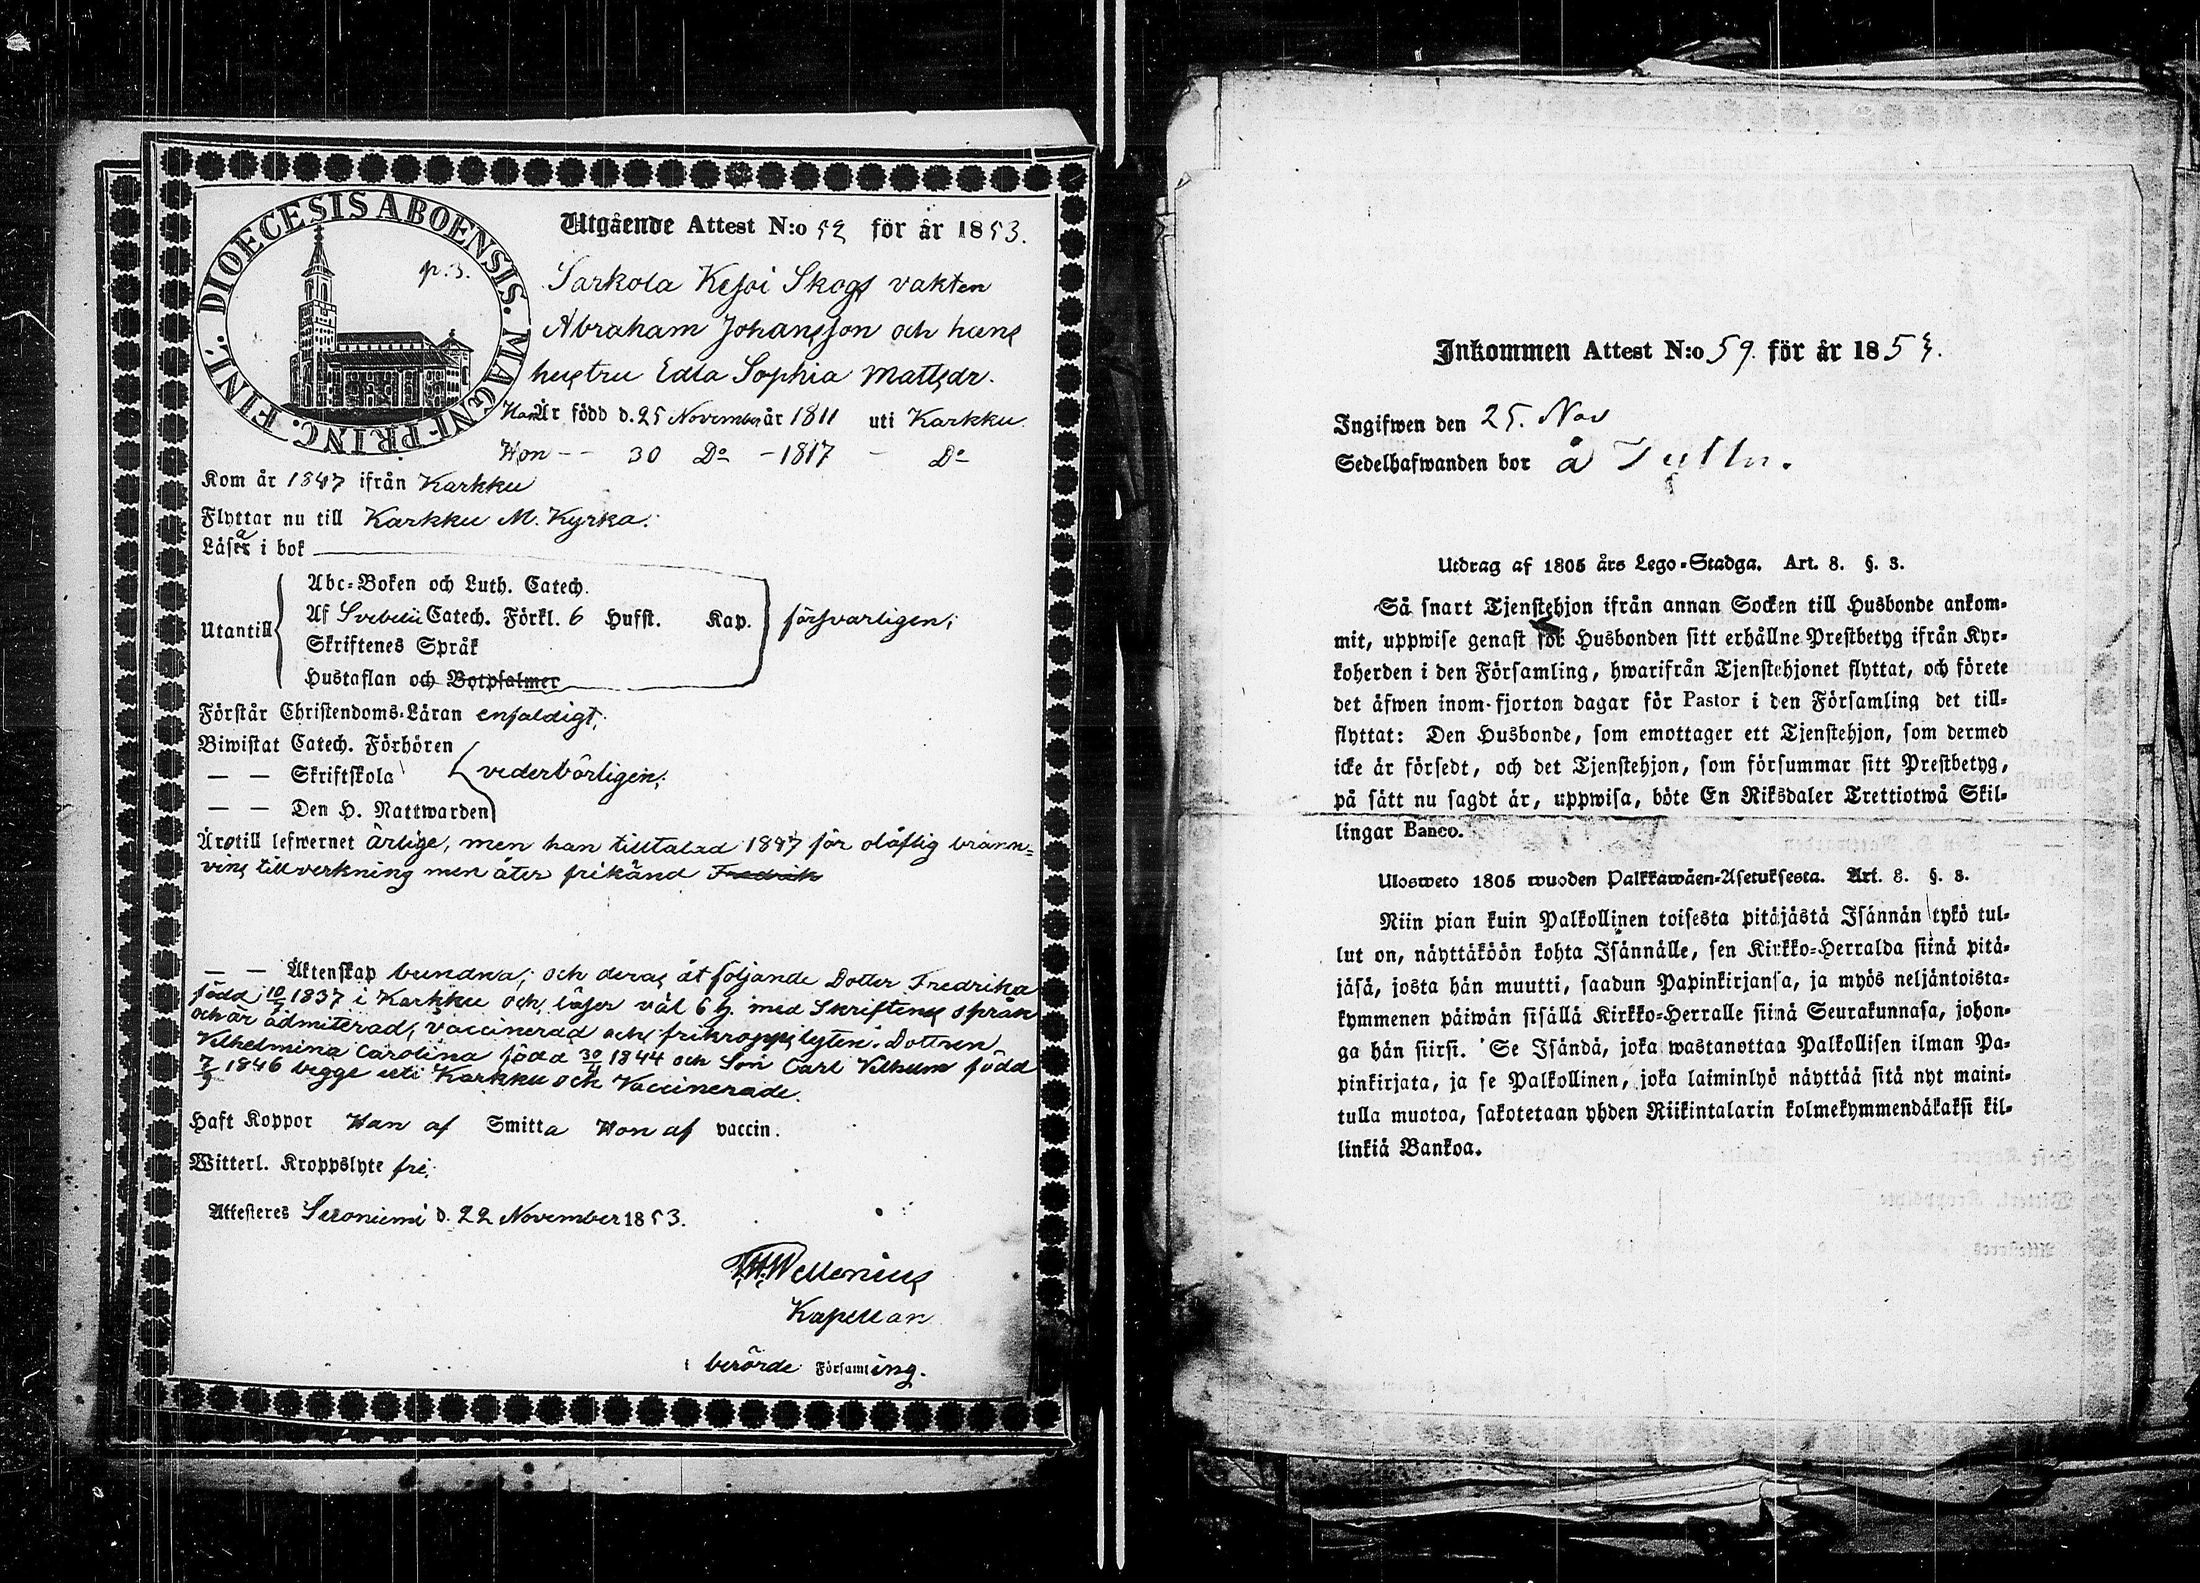 DIOECESIS ABOENSIS. MAGNI-PRINC. FINL.
p. 3.
Utgående Attest N:o 52 för år 1853.
Sarkola Skogs vakten
Abraham Johansson och hans
hustru Edla Sophia Mattsdr.
Han Är född d. 25 November år 1811 uti Karkku
Hon - - 30 Do - 1817 - Do
Kom år 1847 ifrån Karkku
Flyttar nu till Karkku M. Kyrka.
Läsa i bok
Utantill
Abc-Boken och Luth. Catech.
Af Svebelii Catech. Förkl. 6 Hufst. Kap.
Skriftenes Språk
Hustaflan och Botpsalmer
försvarligen;
Förstår Christendoms-Läran enfaldigt;
Biwistat Catech. Förhören
— — Skriftskola
— — Den H. Nattwarden
vederbörligen;
Äro till lefwernet ärlige, men han tilltalad 1847 för olåflig bränn-
vins tillverkning men åter frikänd Fredrik
— — Äktenskap bundna; och deras åtföljande Dotter Fredrika
född 10/7 1837 i Karkku och läser väl 6 h. med Skriftens språk
och är admiterad, vaccinerad och frikroppslyten. Dottren
Vilhelmina Carolina född 30/4 1844 och Son Carl Vilhelm född
7/9 1846 begge uti Karkku och Vaccinerade.
Haft Koppor Han af Smitta Hon af vaccin.
Witterl. Kroppslyte fri;
Attesteres Seroniemi d. 22 November 1853.
Wellenius
Kapellan
i berörde Församling.
Inkommen Attest N:o 59. för år 1853.
Ingifwen den 25. Nov
Sedelhafwanden bor å
Utdrag af 1805 års Lego-Stadga. Art. 8. §. 3.
Så snart Tjenstehjon ifrån annan Socken till Husbonde ankom-
mit, uppwise genast för Husbonden sitt erhållne Prestbetyg ifrån Kyr-
koherden i den Församling, hwarifrån Tjenstehjonet flyttat, och förete
det äfwen inom fjorton dagar för Pastor i den Församling det till-
flyttat: Den Husbonde, som emottager ett Tjenstehjon, som dermed
icke är försedt, och det Tjenstehjon, som försummar sitt Prestbetyg,
på sätt nu sagdt är, uppwisa, böte En Riksdaler Trettiotwå Skil-
lingar Banco.
Ulosweto 1805 wuoden Palkkawäen-Asetuksesta. Art. 8. §. 3.
Niin pian kuin Palkollinen toisesta pitäjästä Isännän tykö tul-
lut on, näyttäköön kohta Isännälle, sen Kirkko-Herralda siinä pitä-
jäsä, josta hän muutti, saadun Papinkirjansa, ja myös neljäntoista-
kymmenen päiwän sisällä Kirkko-Herralle siinä Seurakunnasa, johon-
ga hän siirsi. Se Isändä, joka wastanottaa Palkollisen ilman Pa-
pinkirjata, ja se Palkollinen, joka laiminlyö näyttää sitä nyt maini-
tulla muotoa, sakotetaan yhden Riikintalarin kolmekymmendäkaksi kil-
linkiä Bankoa.